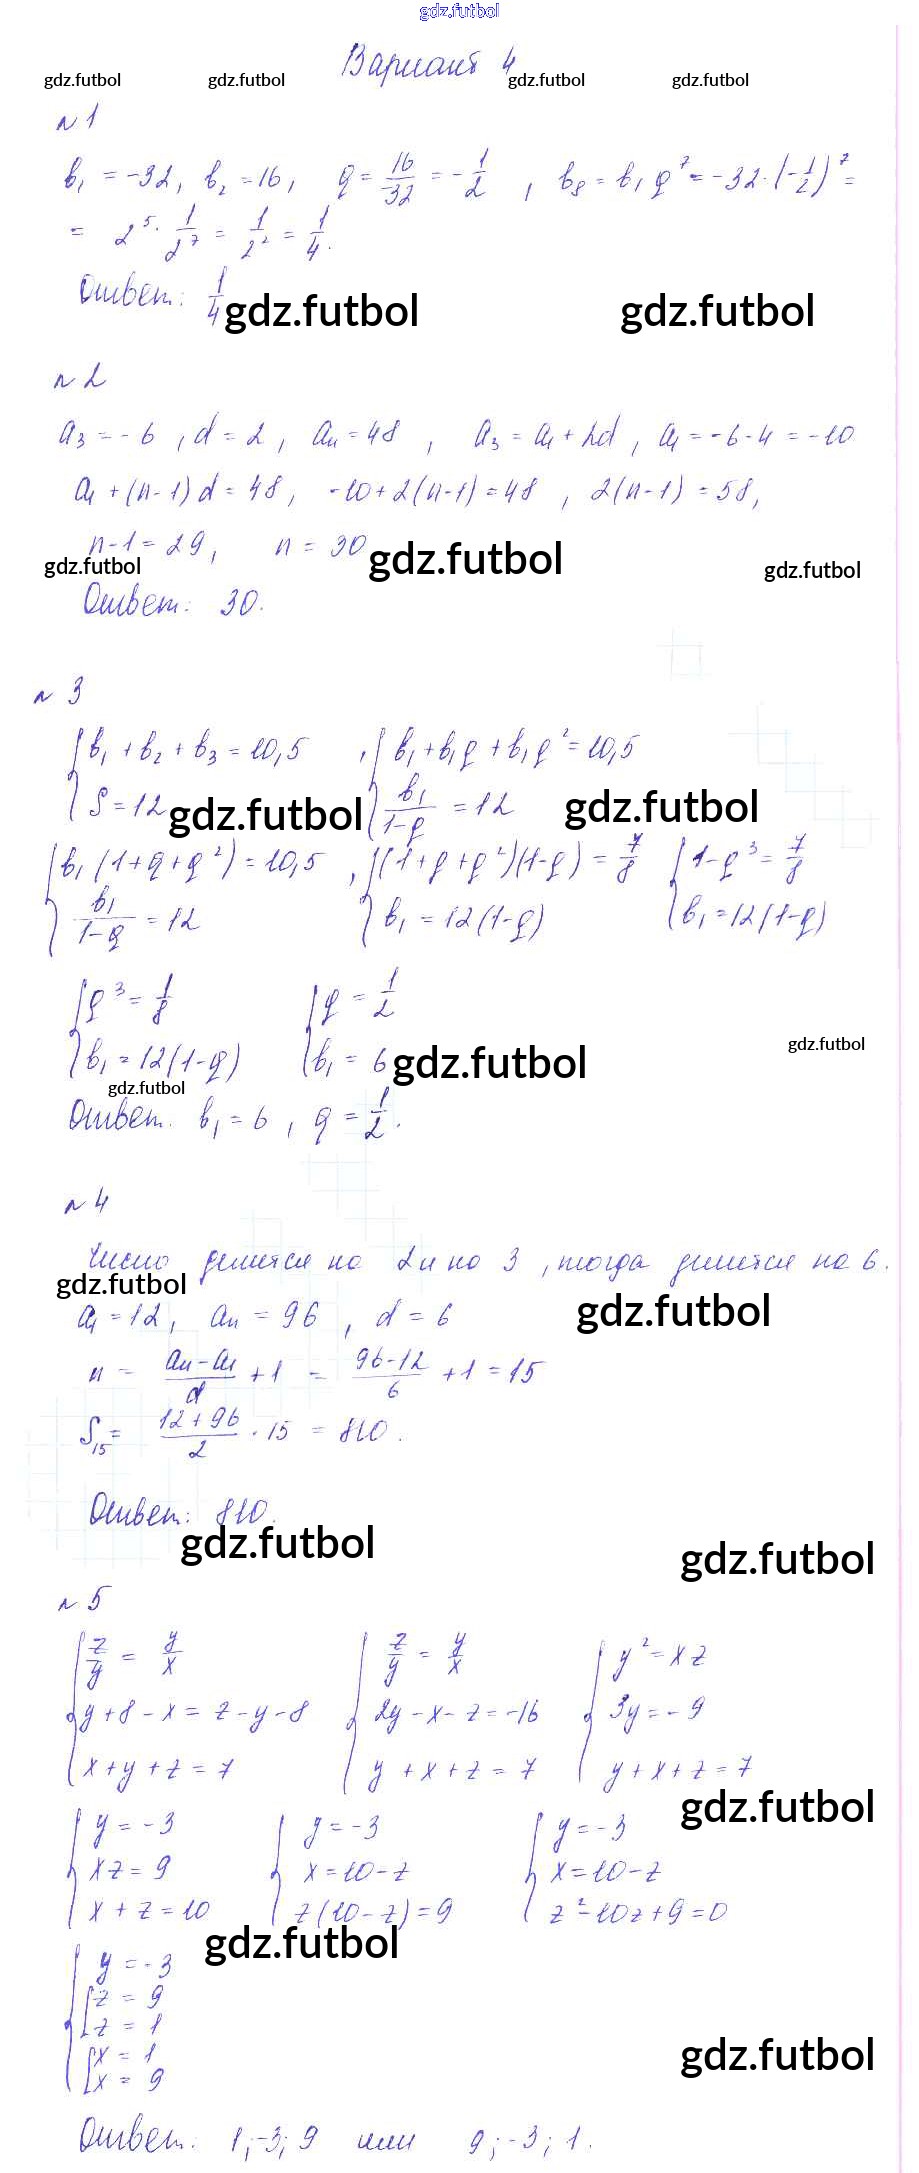 gdz.futbol
Вариант 4
gdz.futbol gdz.futbol gdz.futbol gdz.futbol
№1
b₁ = -32, b₂ = 16, q = 16/-32 = -1/2, b₈ = b₁q⁷ = -32·(-1/2)⁷ =
= 2⁵·1/2⁷ = 1/2² = 1/4.
Ответ: 1/4
gdz.futbol gdz.futbol
№2
a₃ = -6, d = 2, aₙ = 48, a₃ = a₁ + 2d, a₁ = -6-4 = -10
a₁ + (n-1)d = 48, -10+2(n-1) = 48, 2(n-1) = 58,
n-1 = 29, n = 30
gdz.futbol gdz.futbol gdz.futbol
Ответ: 30.
№3
{b₁ + b₂ + b₃ = 10,5, {b₁ + b₁q + b₁q² = 10,5
S = 12 b₁/(1-q) = 12
gdz.futbol gdz.futbol
{b₁(1+q+q²) = 10,5, {(1+q+q²)(1-q) = 7/8 {1-q³ = 7/8
b₁/(1-q) = 12 b₁ = 12(1-q) b₁ = 12(1-q)
{q³ = 1/8 {q = 1/2
b₁ = 12(1-q) b₁ = 6
gdz.futbol gdz.futbol
gdz.futbol
Ответ. b₁ = 6, q = 1/2.
№4
Число делится на 2 и на 3, тогда делится на 6.
gdz.futbol gdz.futbol
a₁ = 12, aₙ = 96, d = 6
n = (aₙ-a₁)/d + 1 = (96-12)/6 + 1 = 15
S₁₅ = (12+96)/2 · 15 = 810.
Ответ: 810.
gdz.futbol gdz.futbol
№5
{z/y = y/x {z/y = y/x {y² = xz
y+8-x = z-y-8 2y-x-z = -16 3y = -9
x+y+z = 7 y+x+z = 7 y+x+z = 7
gdz.futbol
{y = -3 {y = -3 {y = -3
xz = 9 x = 10-z x = 10-z
x+z = 10 z(10-z) = 9 z²-10z+9 = 0
gdz.futbol
{y = -3
[z = 9
z = 1
[x = 1
x = 9
gdz.futbol
Ответ: 1; -3; 9 или 9; -3; 1.